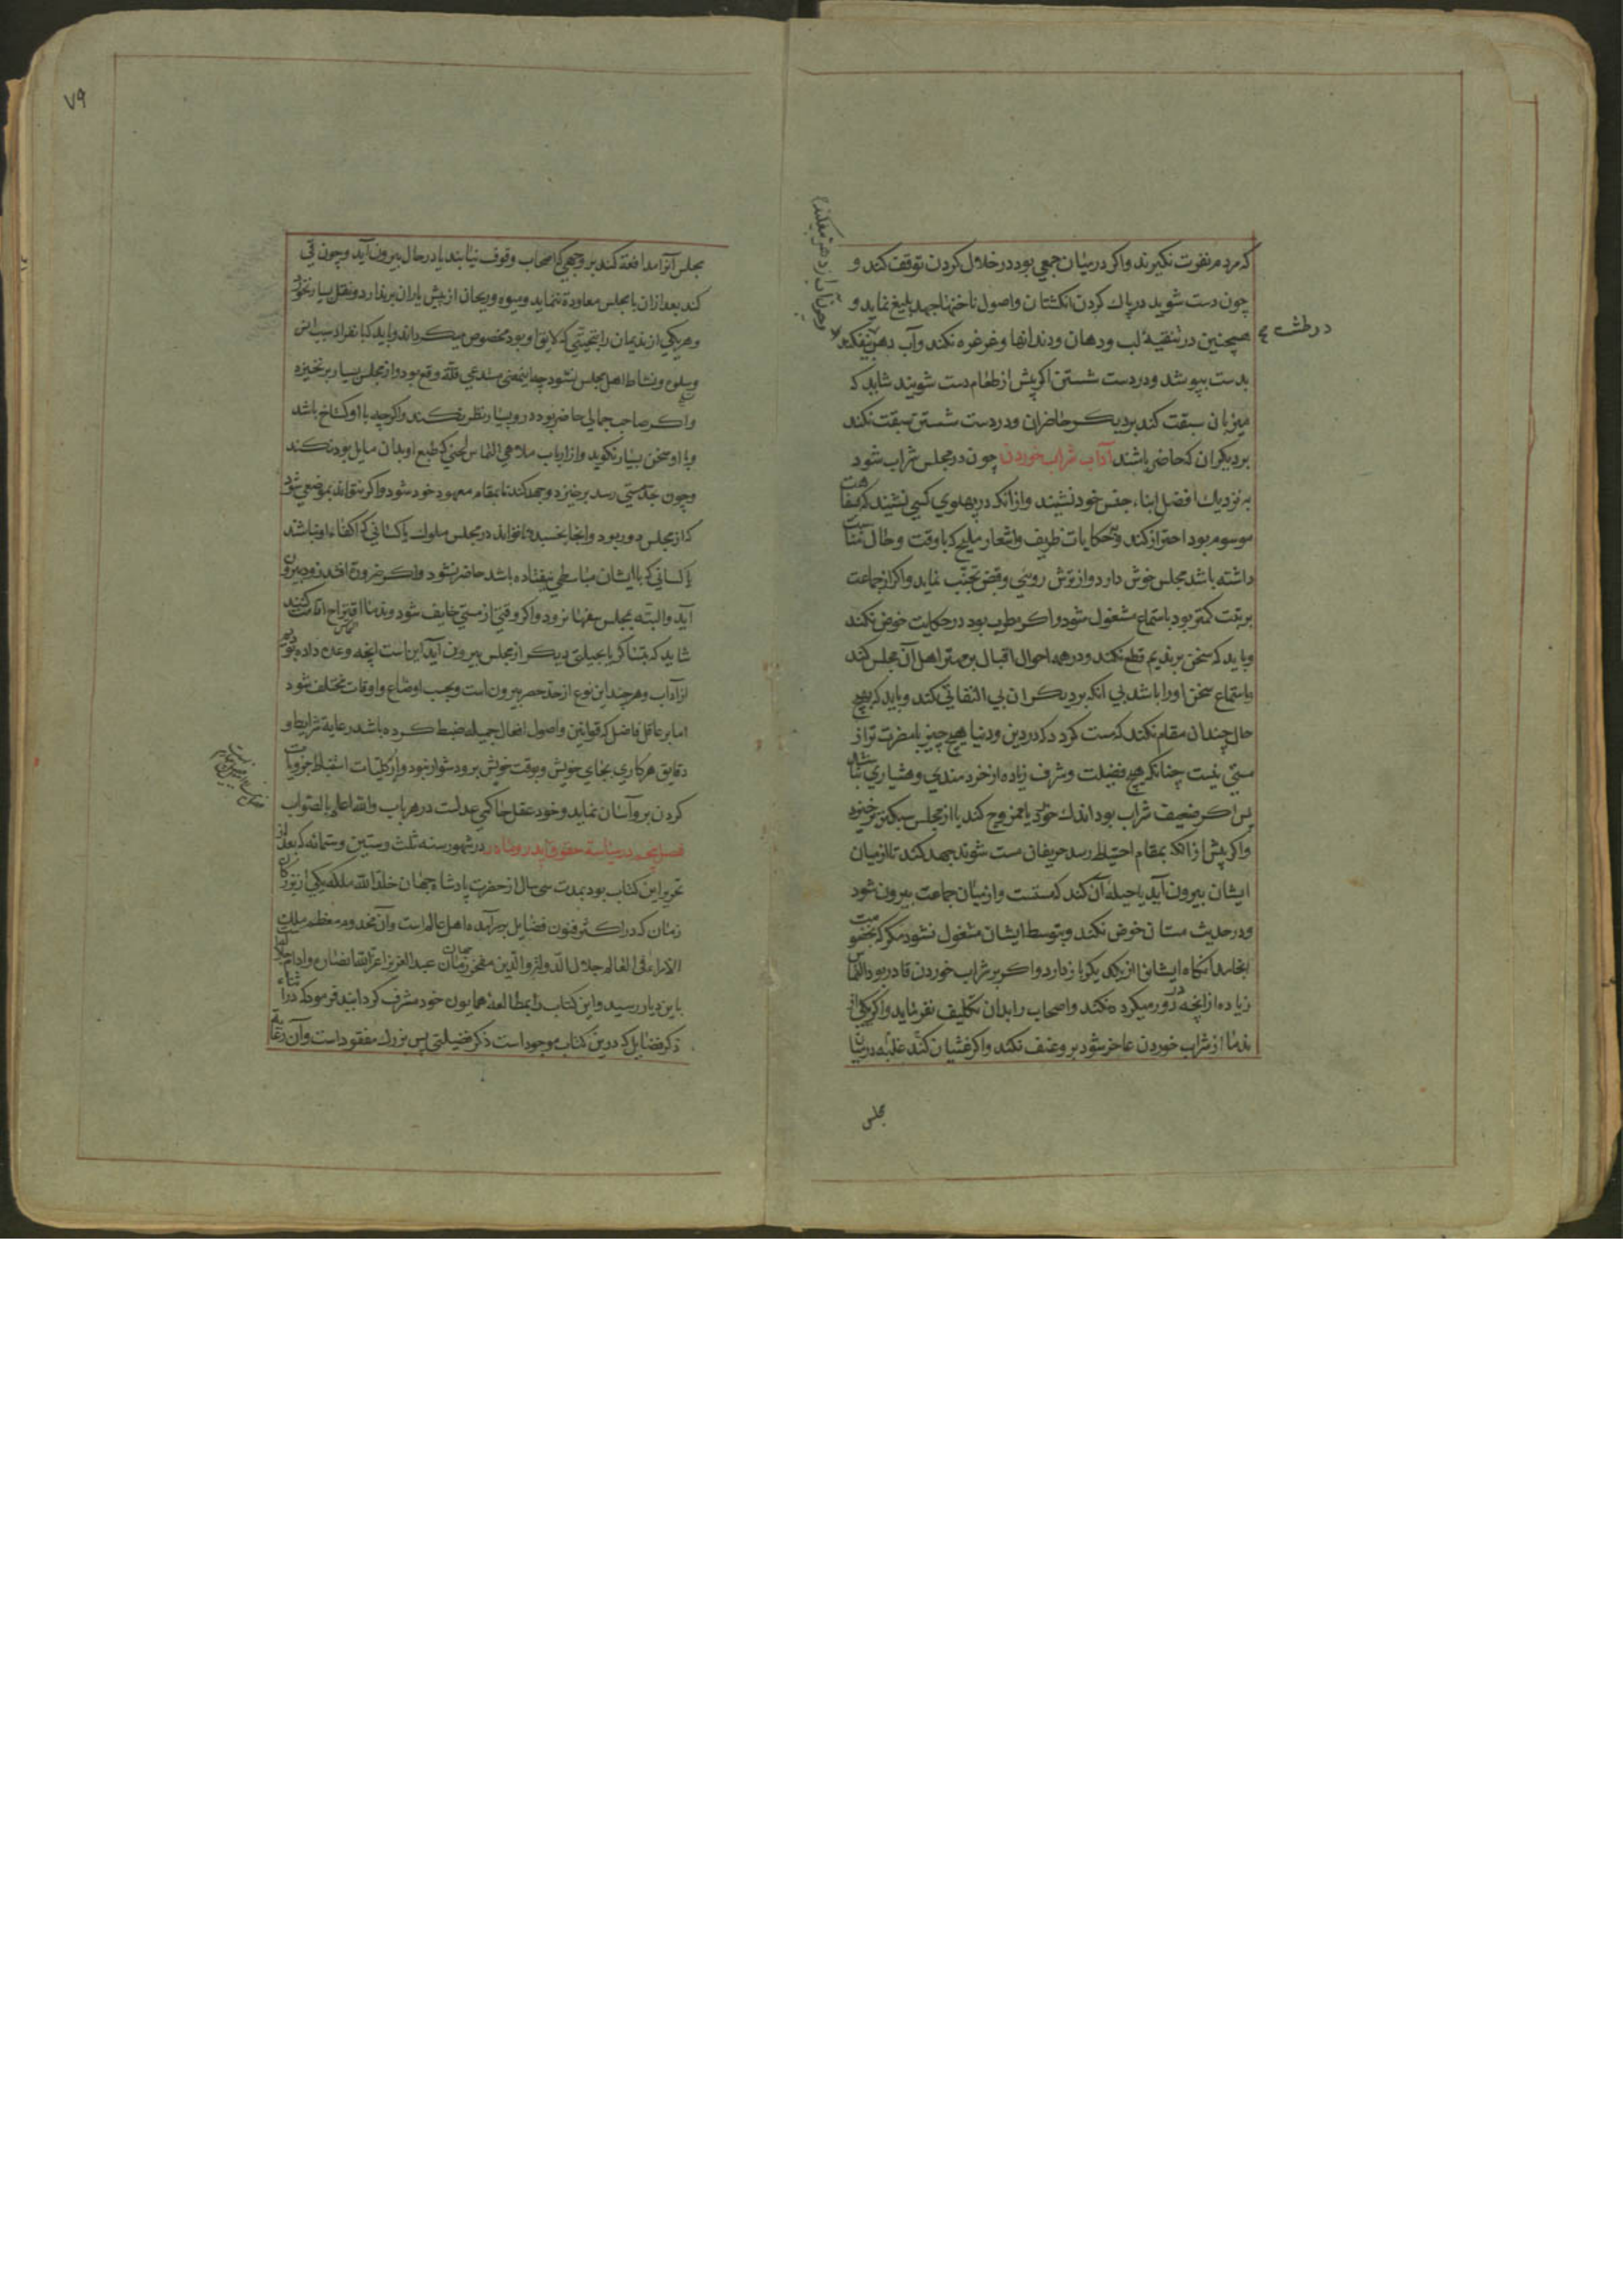 که مردم نفرت نگیرند واکر درمیان جمعی بود در خلال کردن توقف کند و
چون دست شوید در پاك کردن انکشتان واصول ناخنها جهد بلیغ نماید و
همچنین در تنقیهٔ لب ودهان ودندانها وغرغره نکند وآب دهن نیفکند
در طشت
بدست بپوشد ودر دست شستن اکر پیش از طعام دست شویند شاید که
میزبان سبقت کند بر دیکر حاضران ودر دست شستن سبقت نکند
بر دیکران که حاضر باشند آداب شراب خوردن چون در مجلس شراب شود
به نزدیك افضل ابناء جنس خود نشیند وازانکه در پهلوی کسی نشیند که بسفاهت
موسوم بود احتراز کند وبحکایات ظریف واشعار ملیح که با وقت وحال مناسبت
داشته باشد مجلس خوش دارد واز ترش رویی وقبض تجنب نماید واکر از جماعت
برتبت کمتر بود باستماع مشغول شود واکر مطرب بود در حکایت خوض نکند
وباید که سخن بر ندیم قطع نکند ودر همه احوال اقبال بر مهتر اهل آن مجلس کند
باستماع سخن اورا باشد بی انکه بر دیکران بی التفاتی کند وباید که بهیچ
حال چندان مقام نکند که مست کردد که در دین ودنیا هیچ چیز با مضرت تر از
مستی نیست چنانکه هیچ فضیلت وشرف زیاده از خردمندی وهشیاری نباشد
پس اکر ضعیف شراب بود اندك خورد یا ممزوج کند یا از مجلس سبکتر برخیزد
واکر پیش ازانکه بمقام احتیاط رسد حریفان مست شوند جهد کند تا از میان
ایشان بیرون آید یا حیلهٔ آن کند که مست از میان جماعت بیرون شود
ودر حدیث مستان خوض نکند وبتوسط ایشان مشغول نشود مکر که بخصومت
انجامد انکاه ایشانرا از یکدیکر باز دارد واکر بر شراب خوردن قادر بود التماس
زیاده از انچه دور میکردد نکند واصحاب را بدان تکلیف نفرماید واکر یکی از
ندما از شراب خوردن عاجز شود بر وعنف نکند واکر غثیان کند غلبه در میان
مجلس
٧٩
مجلس آنرا مدافعة کند بر وجهی که اصحاب وقوف نیابند یا در حال بیرون آید وچون قی
کند بعد ازان با مجلس معاودة ننماید ومیوه وریحان از پیش یاران برندارد ونقل بسیار نخورد
وهر یکی از ندیمان را بتحیتی که لایق او بود مخصوص میکرداند وباید که بانفراد سبب انس
وسلوت ونشاط اهل مجلس نشود چه اینمعنی مستدعی قلة وقع بود واز مجلس بسیار برنخیزد
واکر صاحب جمالی حاضر بود در وبسیار نظر نکند واکرچه با او کستاخ باشد
وبا او سخن بسیار نکوید واز ارباب ملاهی التماس لحنی که طبع او بدان مایل بود نکند
وچون بحد مستی رسد برخیزد وجهد کند تا بمقام معهود خود شود واکر نتواند بموضعی شود
که از مجلس دور بود وانجا بخسبد وتا تواند در مجلس ملوك یا کسانی که اکفاء او نباشند
یا کسانی که با ایشان مباسطی نیفتاده باشد حاضر نشود واکر ضرورة افتد زود بیرون
آید والبته بمجلس سفها نرود واکر وقتی از مستی خایف شود وندما اقتراح اقامت کنند
شاید که بتساکر یا بحیلتی دیکر از مجلس بیرون آید این است انچه وعده داده بودیم
از آداب وهرچند این نوع از حد حصر بیرون است وبحسب اوضاع واوقات مختلف شود
اما بر عاقل فاضل که قوانین واصول افعال جمیله ضبط کرده باشد رعایة شرایط و
دقایق هر کاری بجای خویش وبوقت خویش برو دشوار نبود واز کلیات استنباط جزویات
کردن برو آسان نماید وخود عقل حاکمی عدلست در هر باب والله اعلم بالصواب
فصل پنجم در سیاسة حقوق پدر ومادر در شهور سنه ثلث وستین وستمائه که بعد از
تحریر این کتاب بود بمدت سی سال از حضرت پادشاه جهان خلد الله ملکه یکی از بزرکان
زمان که در اکثر فنون فضایل بر سرآمده اهل عالم است وآن مخدوم معظم ملك
الامراء فی العالم جلال الدولة والدین مفخر جهان عبد العزیز اعز الله انصاره وادام
باین دیار رسید واین کتاب را بمطالعهٔ همایون خود مشرف کردانید فرمود که در اثناء
ذکر فضایل که درین کتاب موجود است ذکر فضیلتی بس بزرك مفقود است وآن رعایة